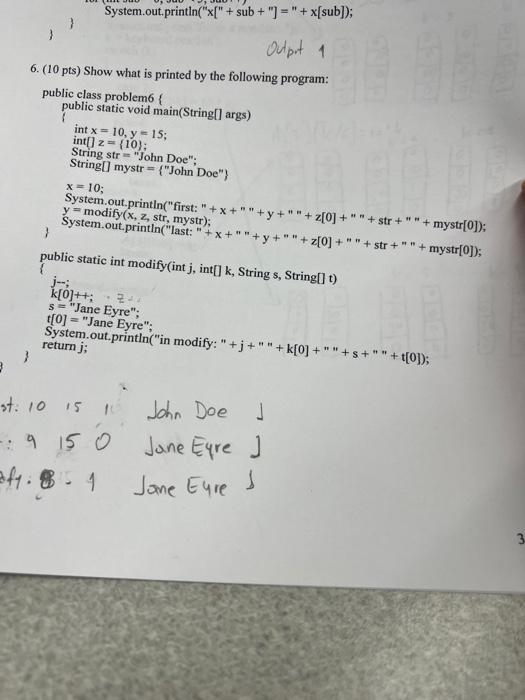 System.out.println("x[" + sub + "] = " + x[sub]);
}
}
Output 1
6. (10 pts) Show what is printed by the following program:
public class problem6 {
public static void main(String[] args)
{
int x = 10, y = 15;
int[] z = {10};
String str = "John Doe";
String[] mystr = {"John Doe"}
x = 10;
System.out.println("first: " + x + " " + y + " " + z[0] + " " + str + " " + mystr[0]);
y = modify(x, z, str, mystr);
System.out.println("last: " + x + " " + y + " " + z[0] + " " + str + " " + mystr[0]);
}
public static int modify(int j, int[] k, String s, String[] t)
{
j--;
k[0]++;
s = "Jane Eyre";
t[0] = "Jane Eyre";
System.out.println("in modify: " + j + " " + k[0] + " " + s + " " + t[0]);
return j;
}
}
st: 10 15 John Doe J
: 9 15 0 Jane Eyre J
1 Jane Eyre
3